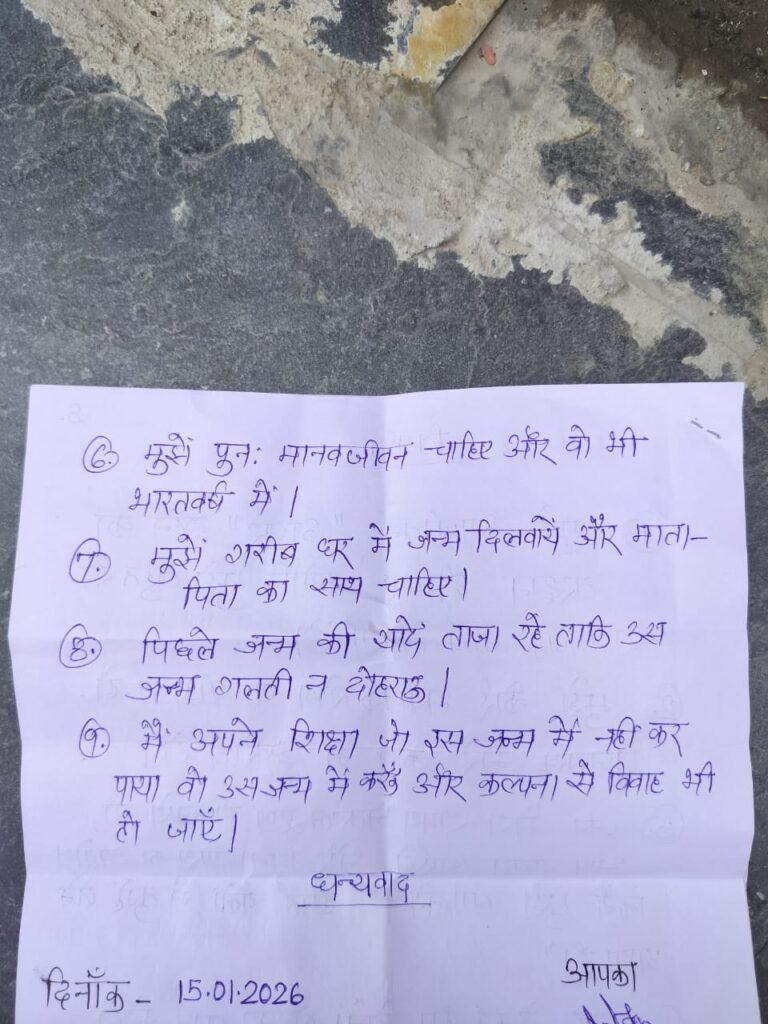 ६. मुझे पुनः मानवजीवन चाहिए और वो भी
भारतवर्ष में।
7. मुझे गरीब घर में जन्म दिलवायें और माता-
पिता का साथ चाहिए।
8. पिछले जन्म की यादें ताजा रहें ताकि उस
जन्म गलती न दोहराऊ।
९. मैं अपने शिक्षा जो इस जन्म में नहीं कर
पाया वो उस जन्म में करूँ और कल्पना से विवाह भी
हो जाएँ।
धन्यवाद
दिनाँक - 15.01.2026
आपका